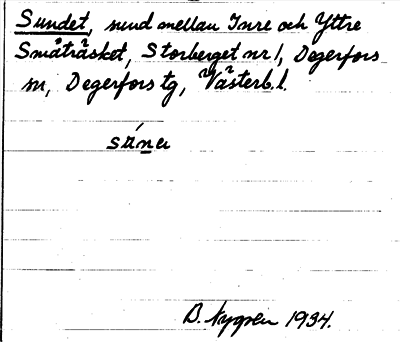 Sundet, sund mellan Inre och Yttre
Småträsket, Storberget nr 1, Degerfors
sn, Degerfors tg, Västerb.l.
B. Nygren 1934.